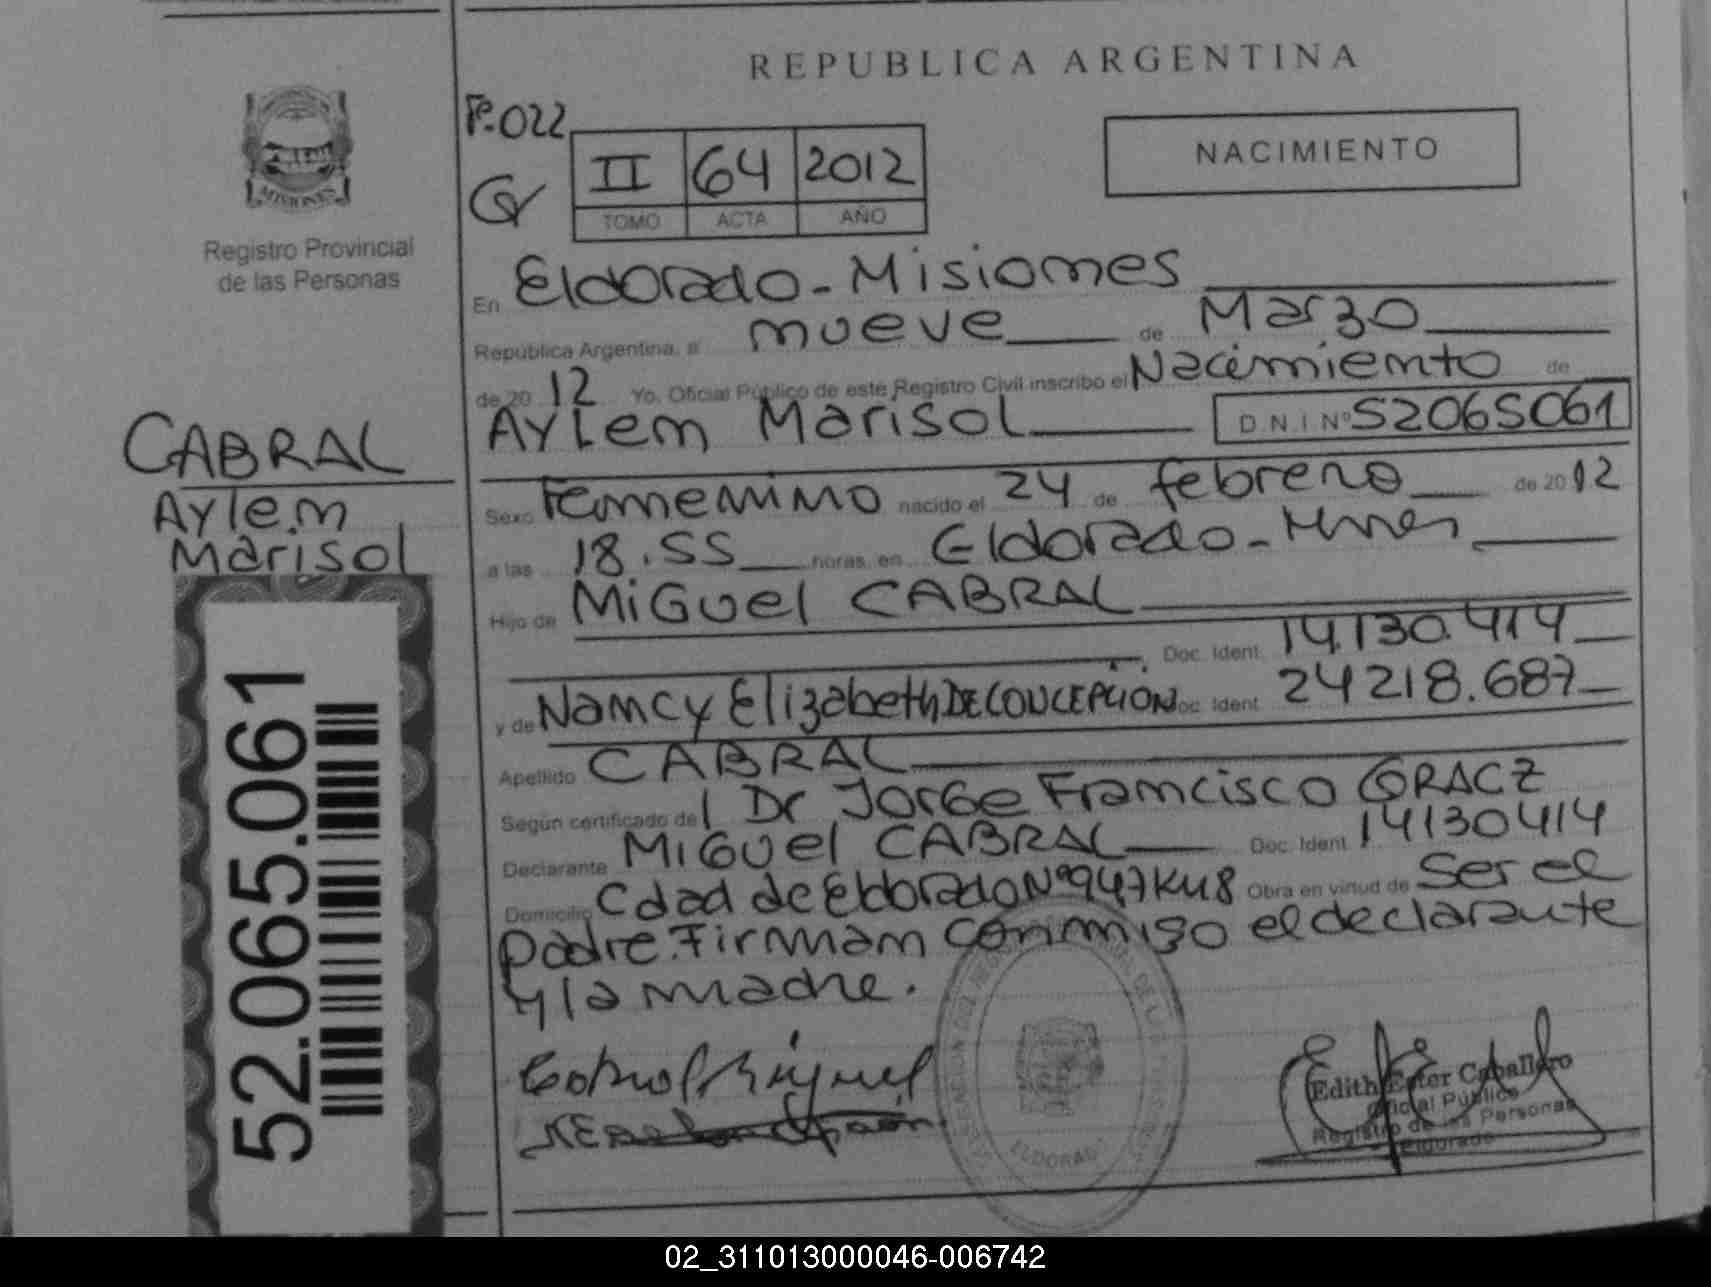 REPUBLICA ARGENTINA
Fº.022
NACIMIENTO
II 64 2012
TOMO ACTA AÑO
MISIONES
Registro Provincial
de las Personas
En Eldorado - Misiones
República Argentina, a nueve de Marzo
de 20 12 Yo, Oficial Público de este Registro Civil inscribo el Nacimiento de
Aylen Marisol D.N.I Nº 52065061
CABRAL
Aylen
Marisol
Sexo Femenino nacido el 24 de febrero de 20 12
a las 18.55 horas, en Eldorado - Mnes
Hijo de Miguel CABRAL
Doc. Ident. 14.130.414
y de Nancy Elizabeth DE CONCEPCIÓN Doc. Ident. 24218.687
Apellido CABRAL
Según certificado del Dr Jorge Francisco GRACZ
Declarante Miguel CABRAL Doc. Ident. 14130414
Domicilio Cdad de Eldorado Nº 947 KM8 Obra en virtud de Ser el
padre. Firman conmigo el declarante
y la madre.
52.065.061
Cabral Miguel
ELDORADO
Edith Ester Caballero
Oficial Público
Registro de las Personas
Eldorado
02_311013000046-006742